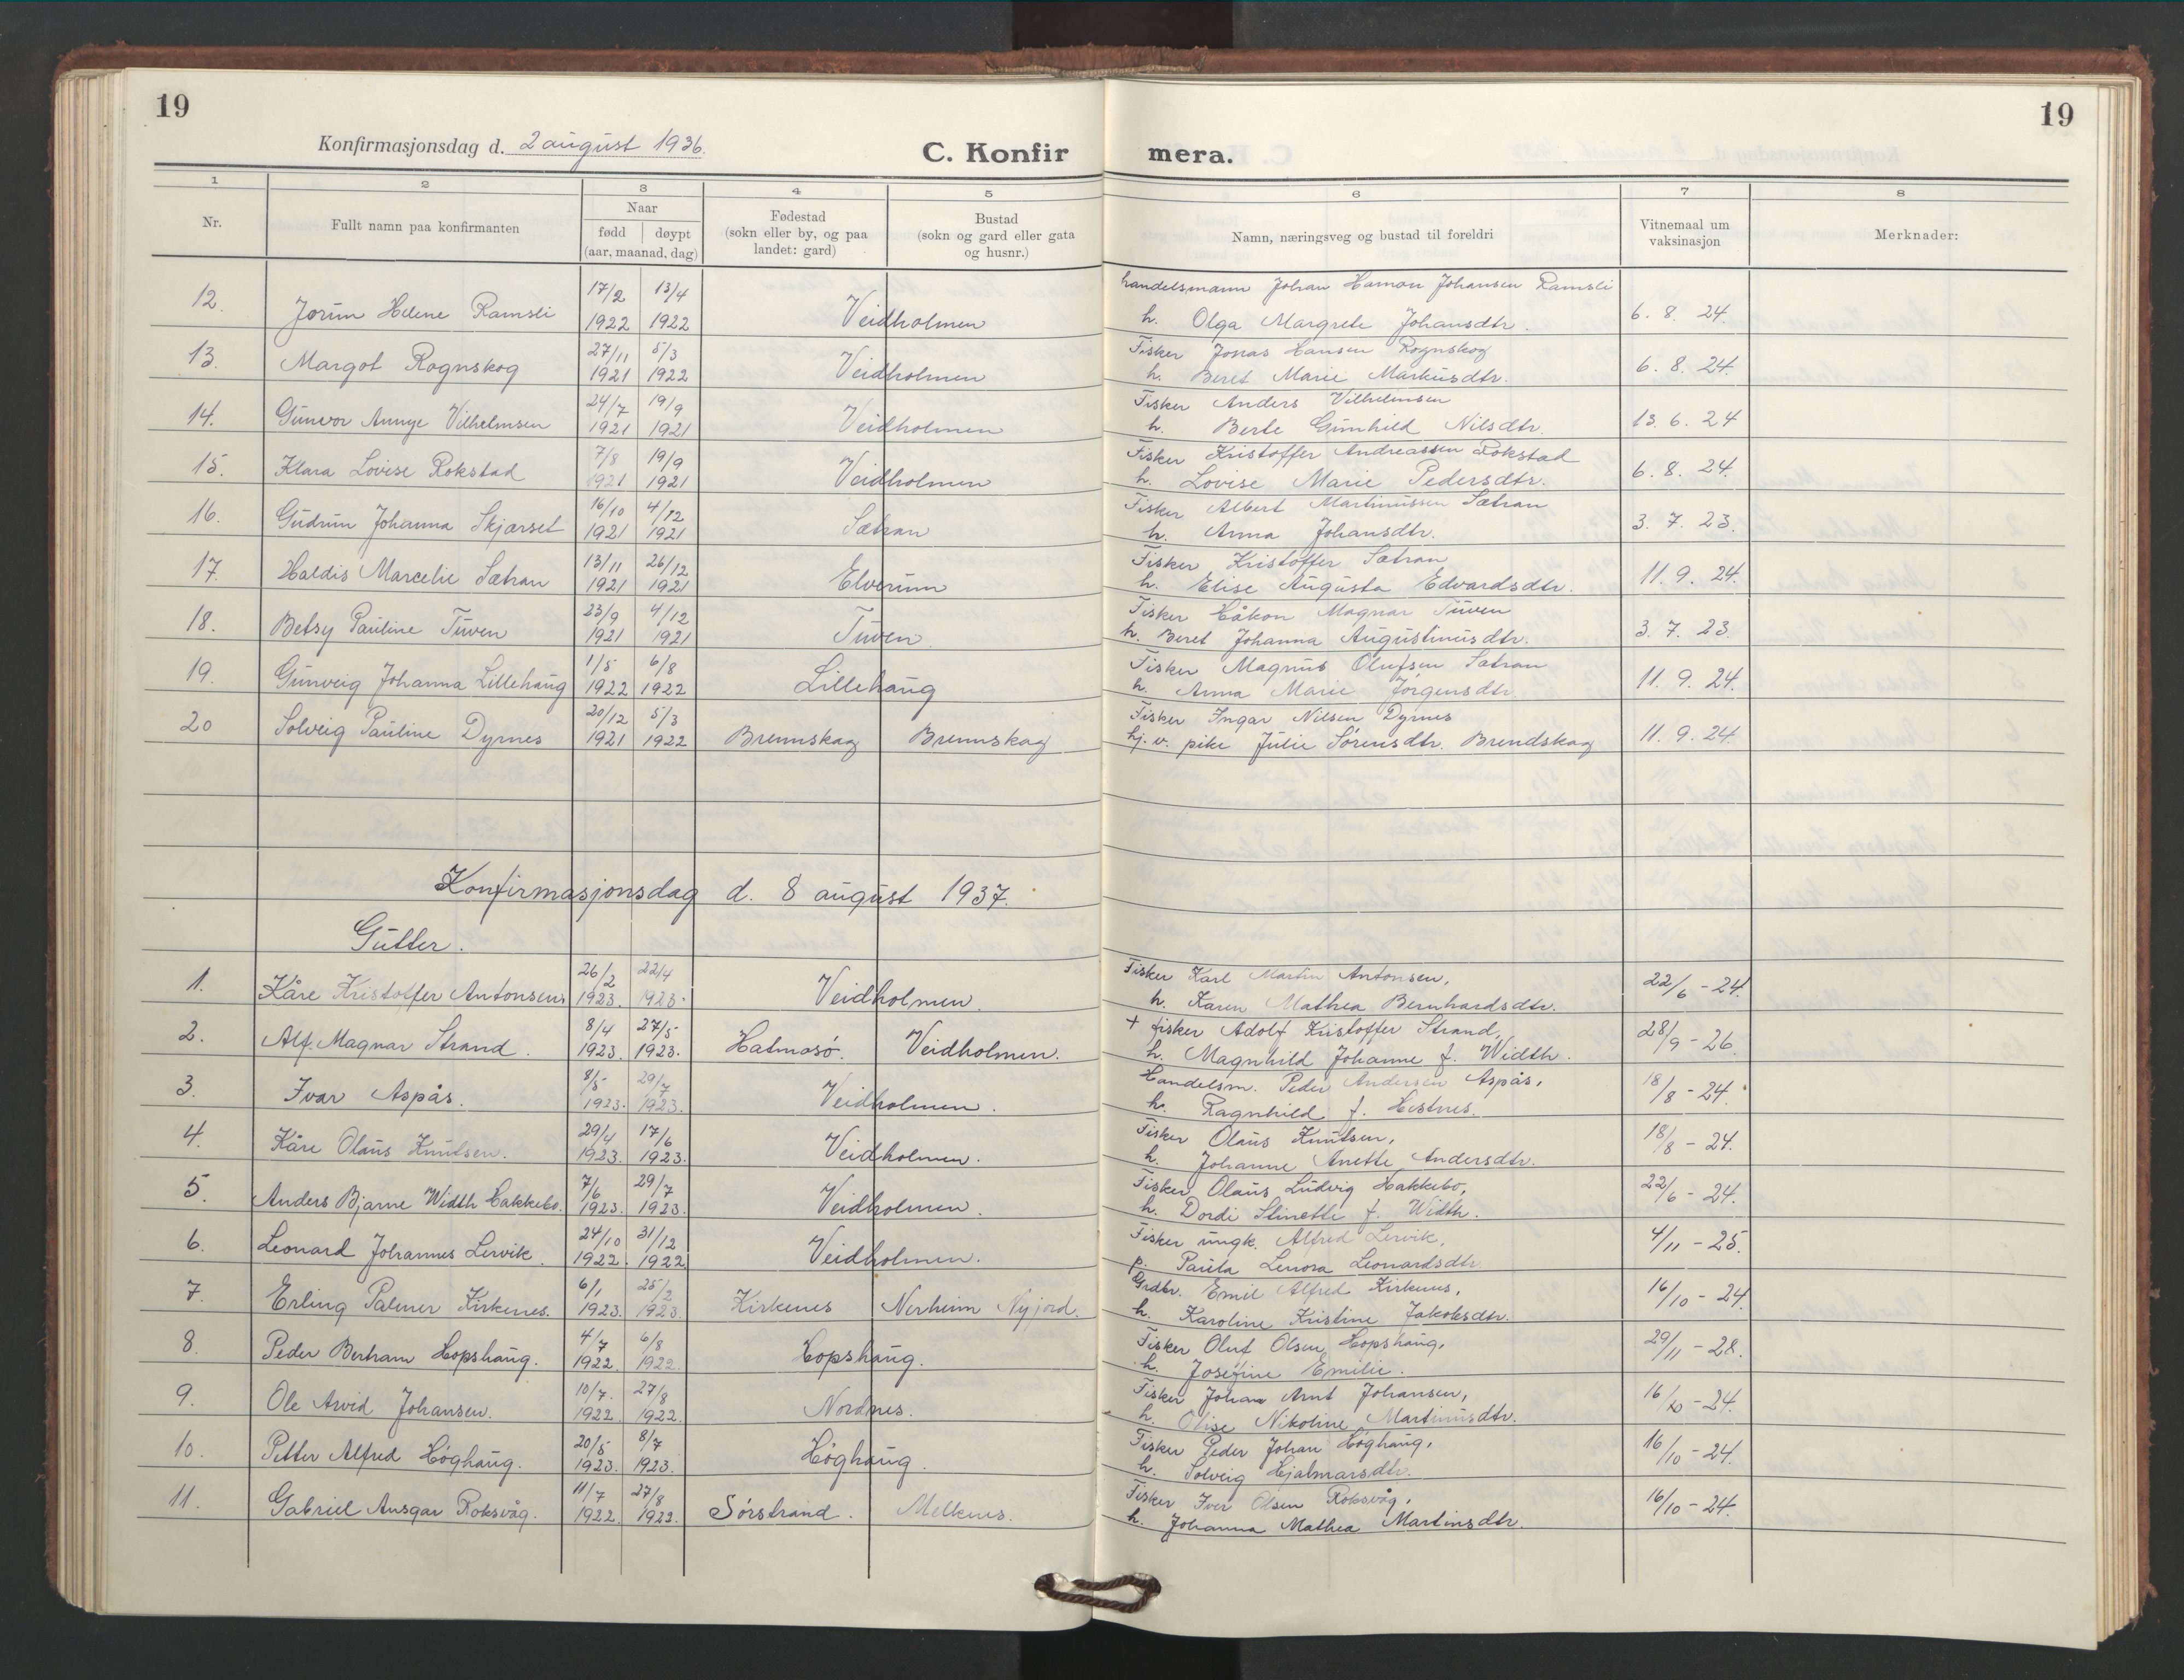 19
19
Konfirmasjonsdag d. 2 august 1936.
C. Konfir mera.
1 2 3 4 5 6 7 8
Nr. Fullt namn paa konfirmanten Naar Fødestad Bustad Namn, næringsveg og bustad til foreldri Vitnemaal um Merknader:
fødd døypt (sokn eller by, og paa (sokn og gard eller gata vaksinasjon
(aar, maanad, dag) landet: gard) og husnr.)
12. 17/2 13/4 handelsmann Johan Hamon Johansen Ramsli
Jorun Helene Ramsli 1922 1922 Veidholmen h. Olga Margrete Johansdtr. 6. 8. 24.
13. 27/11 5/3 Fisker Jonas Hansen Rognskog
Margot Rognskog 1921 1922 Veidholmen h. Beret Marie Markusdtr. 6. 8. 24.
14. 24/7 19/9 Fisker Anders Vilhelmsen
Gunvor Annye Vilhelmsen 1921 1921 Veidholmen h. Berte Gunhild Nilsdtr. 13. 6. 24
15. 7/8 19/9 Fisker Kristoffer Andreassen Rokstad
Klara Lovise Rokstad 1921 1921 Veidholmen h. Lovise Marie Pedersdtr. 6. 8. 24.
16. 16/10 4/12 Fisker Albert Martinussen Sætran
Gudrun Johanna Skjærset 1921 1921 Sætran h. Anna Johansdtr. 3. 7. 23.
17. 13/11 26/12 Fisker Kristoffer Sætran
Haldis Marcelie Sætran 1921 1921 Elverum h. Elise Augusta Edvardsdtr. 11. 9. 24.
18. 23/9 4/12 Fisker Håkon Magnar Tuven
Betsy Pauline Tuven 1921 1921 Tuven. h. Beret Johanna Augustinusdtr. 3. 7. 23.
19. 1/5 6/8 Fisker Magnus Olufsen Sætran
Gunveig Johanna Lillehaug 1922 1922 Lillehaug h. Anna Marie Jørgensdtr. 11. 9. 24.
20 20/12 5/3 Fisker Ingar Nilsen Dyrnes
Solveig Pauline Dyrnes 1921 1922 Brennskag Brennskag hj. v. pike Julie Sørensdtr. Brendskag 11. 9. 24.
Konfirmasjonsdag d. 8 august 1937.
Gutter.
1. 26/2 22/4 Fisker Karl Martin Antonsen,
Kåre Kristoffer Antonsen. 1923. 1923. Veidholmen h. Karen Mathea Bernhardsdtr. 22/6 - 24.
2. 8/4 27/5 + fisker Adolf Kristoffer Strand,
Alf Magnar Strand. 1923. 1923. Hatmosø. Veidholmen. h. Magnhild Johanne f. Width. 28/9 - 26.
3. 8/5 29/7 Handelsm. Peder Andersen Aspås,
Ivar Aspås. 1923. 1923. Veidholmen. h. Ragnhild f. Hestnes. 18/8 - 24.
4. 29/4 17/6 Fisker Olaus Knutsen,
Kåre Olaus Knutsen. 1923. 1923. Veidholmen. h. Johanne Anette Andersdtr. 18/8 - 24.
5. 7/6 29/7 Fisker Olaus Ludvig Hakkebo,
Anders Bjarne Width Hakkebo. 1923. 1923. Veidholmen. h. Dordi Stinette f. Width. 22/6 - 24.
6. 24/10 31/12 Fisker ungk. Alfred Lervik,
Leonard Johannes Lervik. 1922. 1922. Veidholmen. p. Paula Lenora Leonardsdtr. 4/11 - 25.
7. 6/1 25/2 Grdbr. Emil Alfred Kirkenes,
Erling Palmer Kirkenes. 1923. 1923. Kirkenes Nerheim Nyjord. h. Karoline Kristine Jakobsdtr. 16/10 - 24.
8. 4/7 6/8 Fisker Oluf Olsen Hopshaug,
Peder Bertram Hopshaug. 1922. 1922. Hopshaug. h. Josefine Emilie. 29/11 - 28.
9. 10/7. 27/8 Fisker Johan Arnt Johansen,
Ole Arvid Johansen. 1922. 1922. Nordnes. h. Olise Nikoline Martinusdtr. 16/10 - 24.
10. 20/5 8/7 Fisker Peder Johan Høghaug,
Petter Alfred Høghaug. 1923. 1923. Høghaug. h. Solveig Hjalmarsdtr. 16/10 - 24.
11. 11/7 27/8 Fisker Iver Olsen Roksvåg,
Gabriel Ansgar Roksvåg. 1922. 1922. Sørstrand. Melknes. h. Johanna Mathea Martinsdtr. 16/10 - 24.